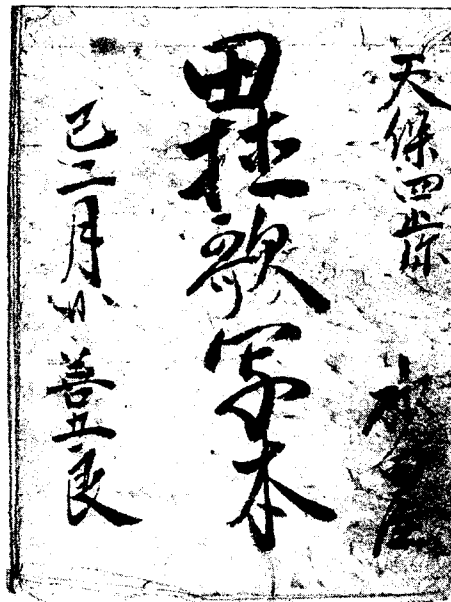 天保四歳
田植歌写本
巳二月 善五良